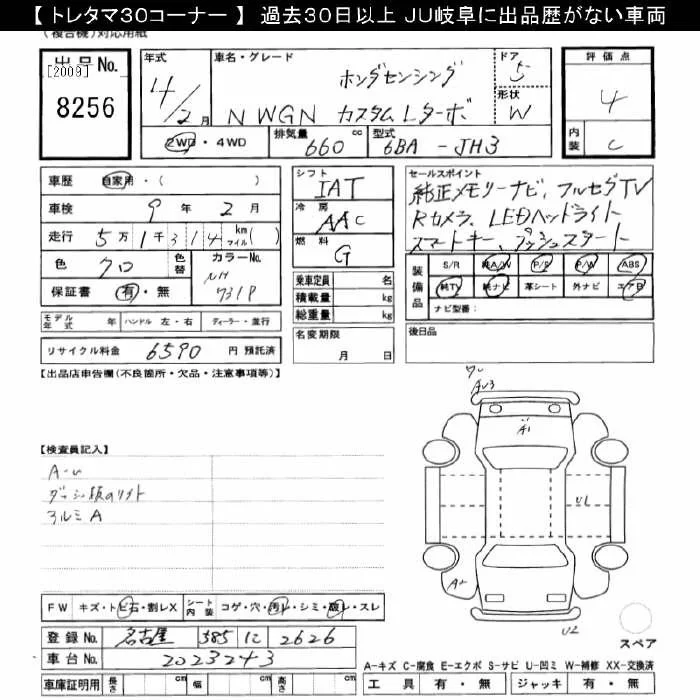 【 トレタマ30コーナー 】 過去30日以上 JU岐阜に出品歴がない車両
(複合機)対応用紙
出品No. 年式 車名・グレード ドア 評価点
[2009] ホンダセンシング 5
8256 4/2月 N WGN カスタムLターボ 形状 W 4
2WD・4WD 排気量 660 cc 型式 6BA-JH3 内装 C
車歴 自家用・( ) シフト IAT セールスポイント
車検 9年 2月 冷房 AAC 純正メモリーナビ、フルセグTV
走行 5万1千314 km マイル( ) 燃料 G Rカメラ、LEDヘッドライト
スマートキー、プッシュスタート
色 クロ 色替 カラーNo. NH731P
乗車定員 名 装備品 S/R 純A/W P/S P/W ABS
保証書 有・無 積載量 kg 純TV 純ナビ 革シート 外ナビ エアB
総重量 kg ナビ型番:
モデル年式 年 ハンドル 左・右 ディーラー・並行 名変期限 月 日 後日品
リサイクル料金 6590 円 預託済
【出品店申告欄(不良箇所・欠品・注意事項等)】
A3
A1
【検査員記入】
アルミA
UL
A
FW キズ・トビ石・割レX シート内装 コゲ・穴・汚レ・シミ・破レ・スレ
U2
登録No. 名古屋 585 に 2626 スペア
車台No. 2023243
A-キズ C-腐食 E-エクボ S-サビ U-凹ミ W-補修 XX-交換済
車庫証明用 長さ cm 幅 cm 高さ cm 工具 有・無 ジャッキ 有・無